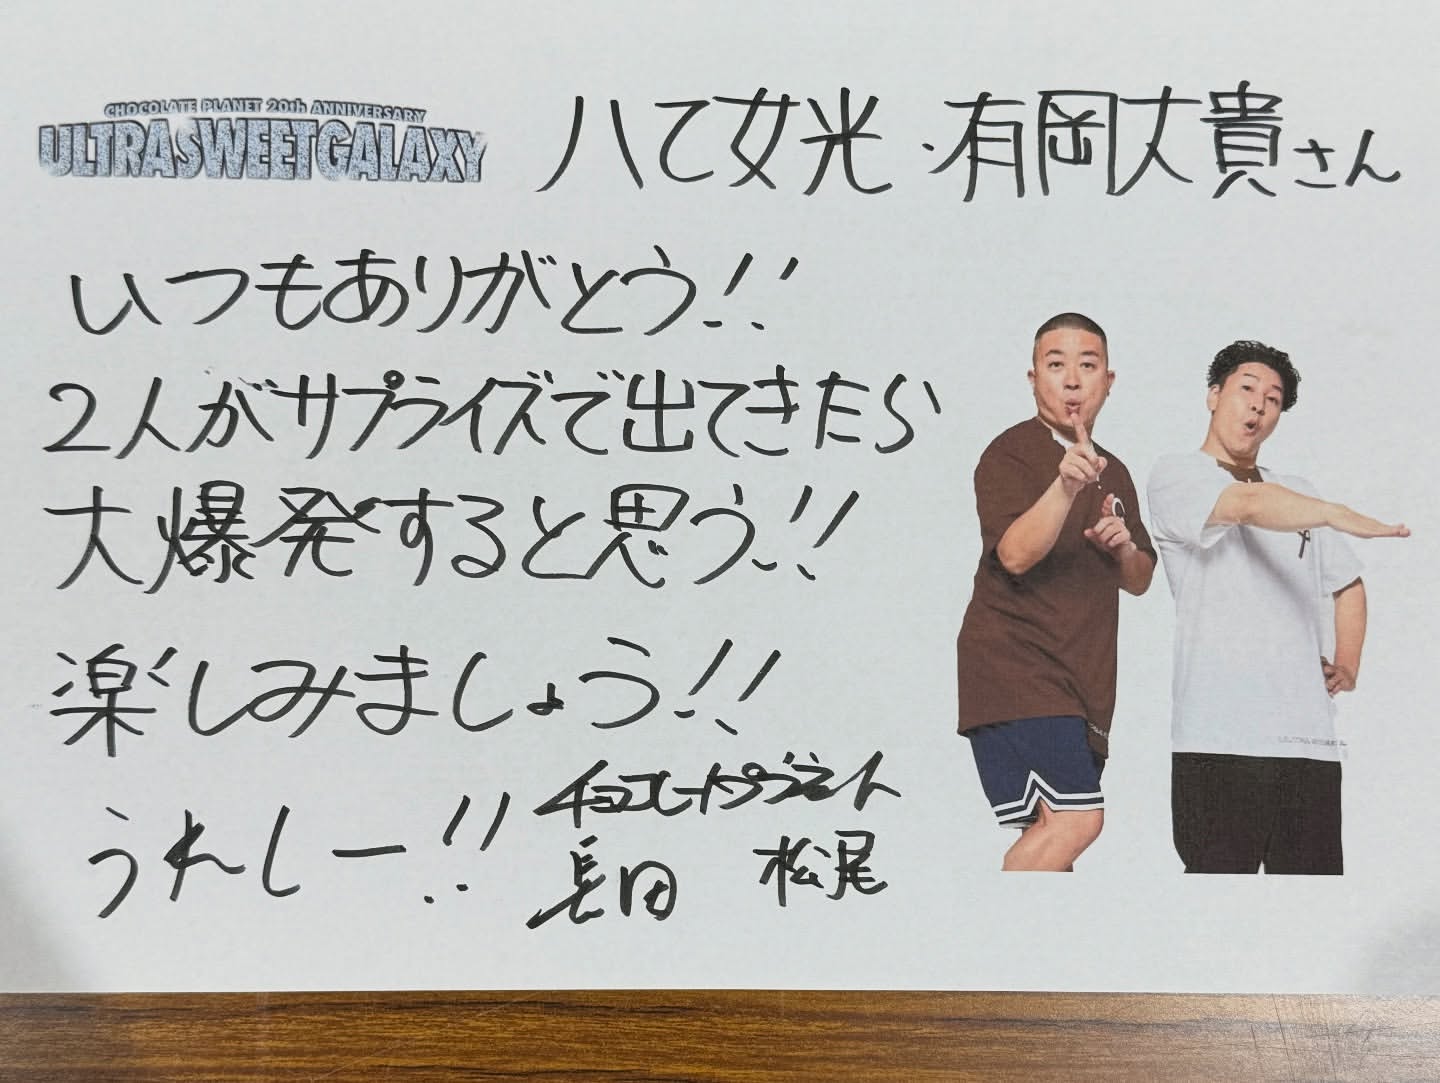 CHOCOLATE PLANET 20th ANNIVERSARY
ULTRA SWEET GALAXY
八乙女光・有岡大貴さん
いつもありがとう!!
2人がサプライズで出てきたら
大爆発すると思う!!
楽しみましょう!!
うれしー!!
チョコレートプラネット
長田 松尾